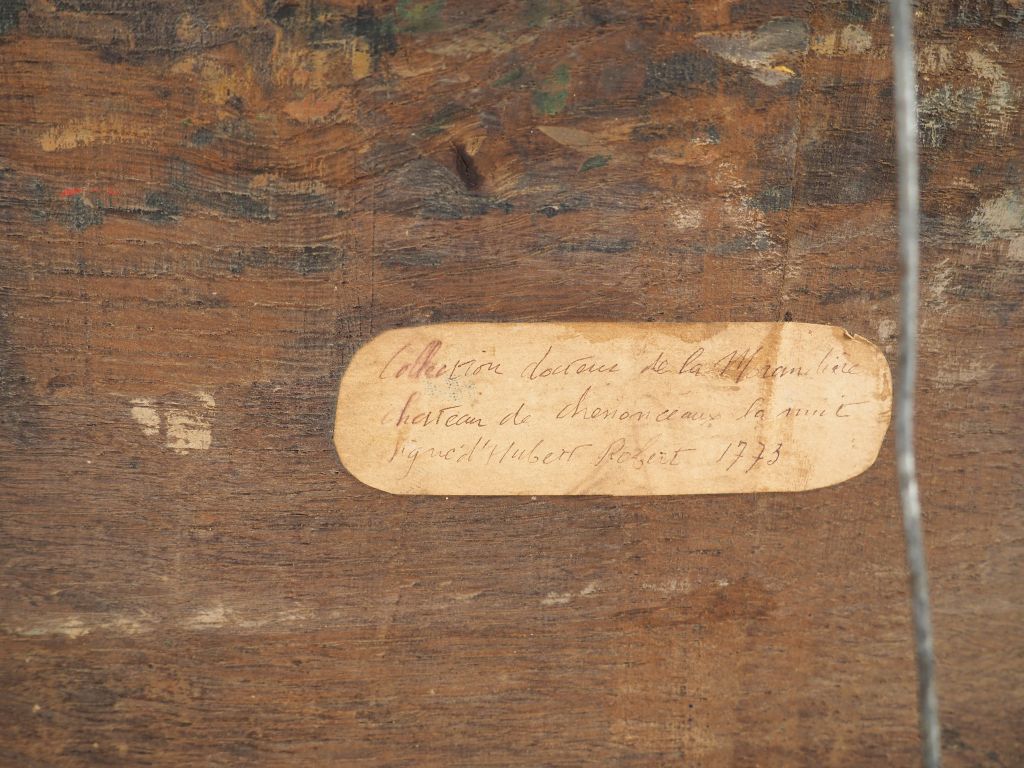 Collection docteur de la Morandière
chateau de chenonceaux la nuit
signé d'Hubert Robert 1773